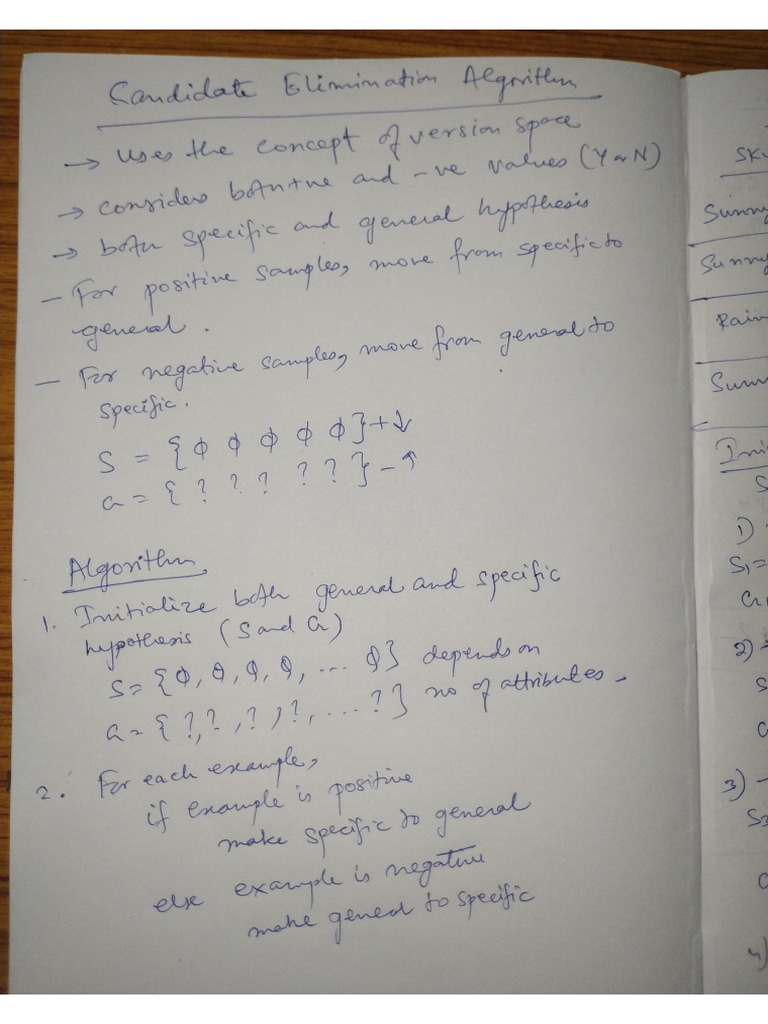 Candidate Elimination Algorithm
→ Uses the concept of version space
→ considers both +ve and -ve values (Y or N)
→ both specific and general hypothesis
- For positive samples, move from specific to
general.
- For negative samples, move from general to
specific.
S = {φ φ φ φ φ} + ↓
G = {? ? ? ? ?} - ↑
Algorithm
1. Initialize both general and specific
hypothesis (S and G)
S = {φ, φ, φ, φ, ... φ} depends on
G = {?, ?, ?, ?, ... ?} no of attributes.
2. For each example,
if example is positive
make specific to general
else example is negative
make general to specific
Sunny
Sunny
1)
S1 =
2)
3) -
S3
4)